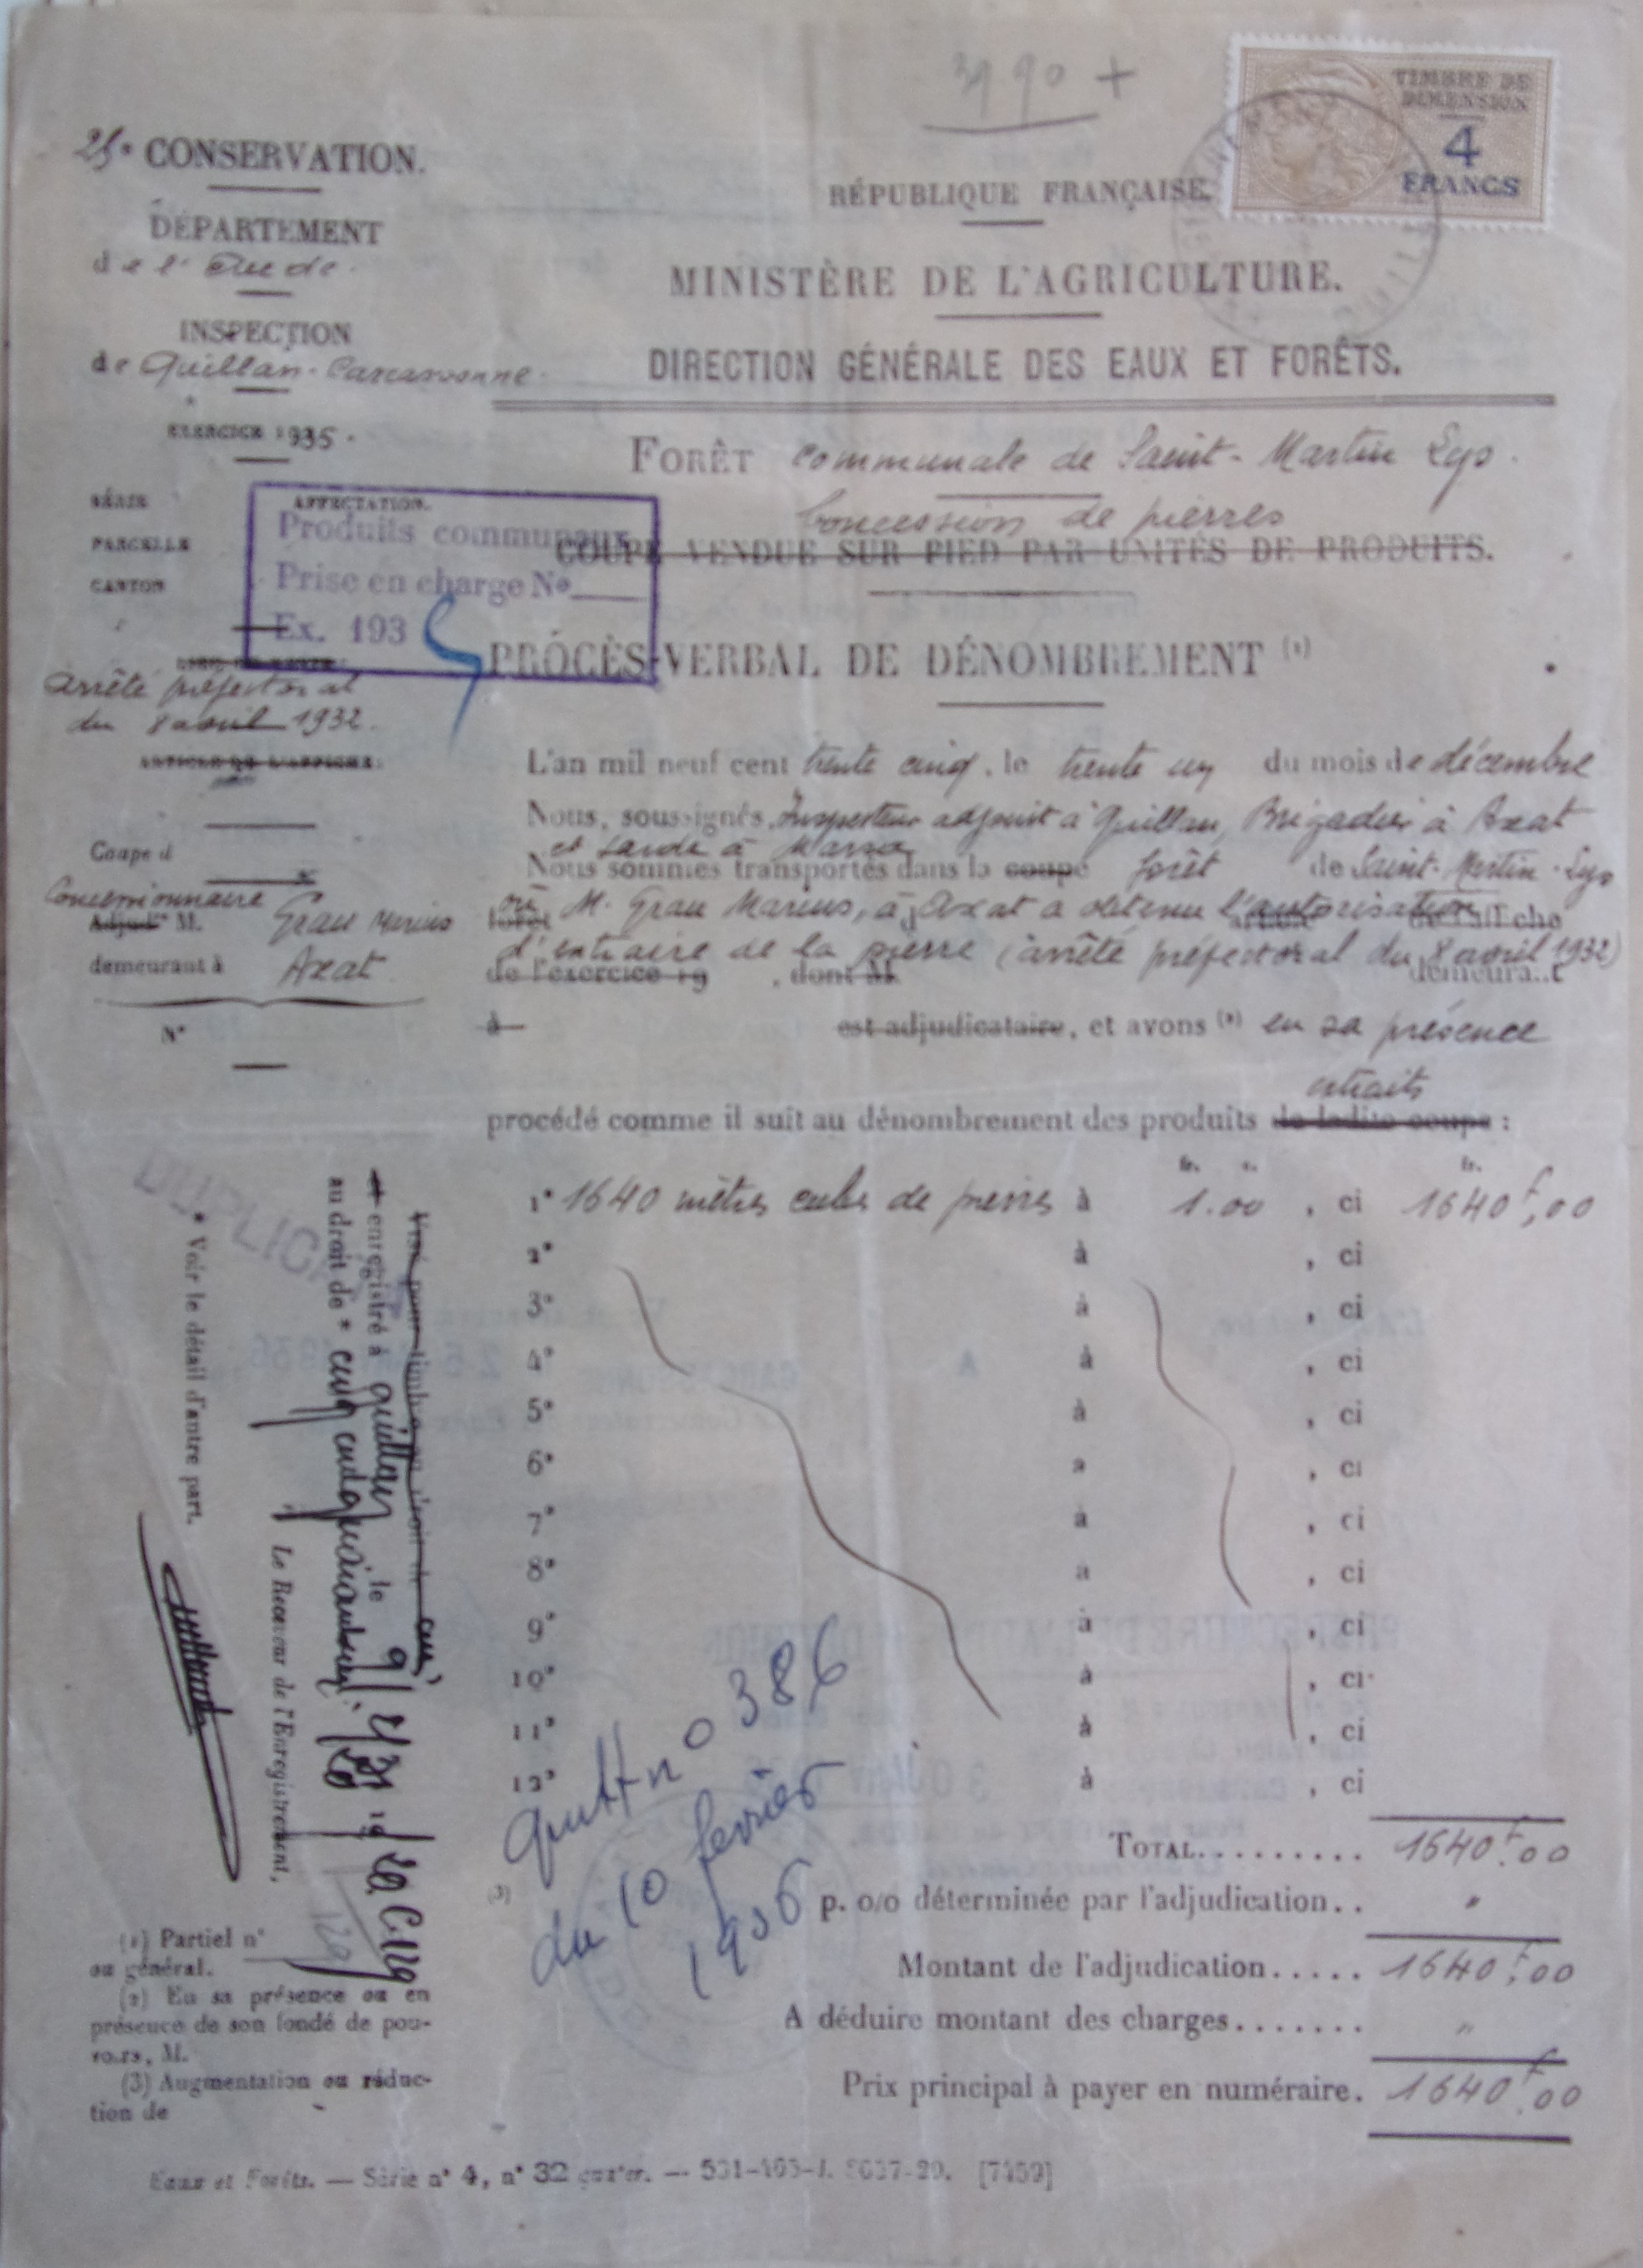 3990 +
TIMBRE DE
DIMENSION
4
FRANCS
25e CONSERVATION.
DÉPARTEMENT
de l'Aude.
INSPECTION
de Quillan-Carcassonne.
EXERCICE 1935.
SÉRIE
AFFECTATION.
PARCELLE
CANTON
Produits communaux
Prise en charge No
Ex. 193 5
LIEU DE VENTE:
Arrêté préfectoral
du 8 avril 1932.
ARTICLE DE L'AFFICHE:
Coupe d
Concessionnaire
Adjudre M. Grau Marius
demeurant à Axat
N°
RÉPUBLIQUE FRANÇAISE.
MINISTÈRE DE L'AGRICULTURE.
DIRECTION GÉNÉRALE DES EAUX ET FORÊTS.
FORÊT communale de Saint-Martin Lys.
Concession de pierres
COUPE VENDUE SUR PIED PAR UNITÉS DE PRODUITS.
PROCÈS-VERBAL DE DÉNOMBREMENT (1)
L'an mil neuf cent trente cinq, le trente un du mois de décembre
Nous, soussignés, Inspecteur adjoint à Quillan, Brigadier à Axat
et Garde à
Nous sommes transportés dans la coupe forêt de Saint-Martin-Lys
où M. Grau Marius, à Axat a obtenu l'autorisation
forêt article de l'affiche
d'extraire de la pierre (arrêté préfectoral du 8 avril 1932)
de l'exercice 19 , dont M. demeurant
à est adjudicataire, et avons (2) en sa présence
extraits
procédé comme il suit au dénombrement des produits de ladite coupe :
fr. c. fr.
1° 1640 mètres cubes de pierres à 1.00 , ci 1640f,00
2° à , ci
3° à , ci
4° à , ci
5° à , ci
6° à , ci
7° à , ci
8° à , ci
9° à , ci
10° à , ci
11° à , ci
12° à , ci
TOTAL.......... 1640f.00
(3) p. 0/0 déterminée par l'adjudication.. "
Montant de l'adjudication..... 1640f.00
A déduire montant des charges....... "
Prix principal à payer en numéraire. 1640f.00
Quitt n° 386
du 10 février
1936
DUPLICATA
Visé pour timbre au droit de
et enregistré à Quillan le 9
au droit de *
Le Receveur de l'Enregistrement,
* Voir le détail d'autre part.
129
(1) Partiel n°
ou général.
(2) En sa présence ou en
présence de son fondé de pou-
voirs, M.
(3) Augmentation ou réduc-
tion de
Eaux et Forêts. — Série n° 4, n° 32 quater. — 531-405-J. 8637-29. [7459]